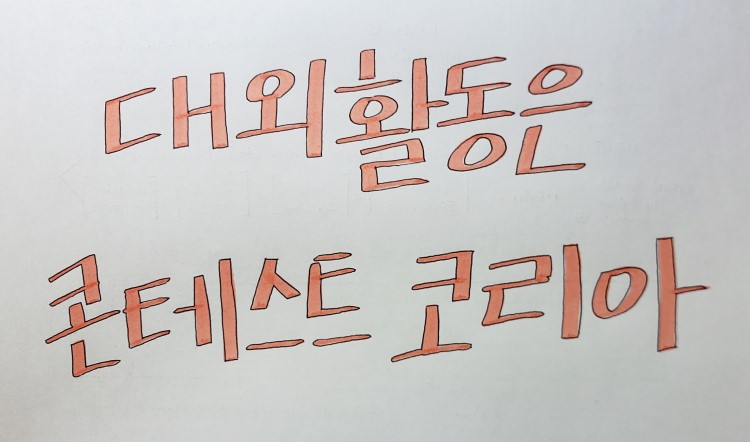 대외활동은
콘테스트 코리아